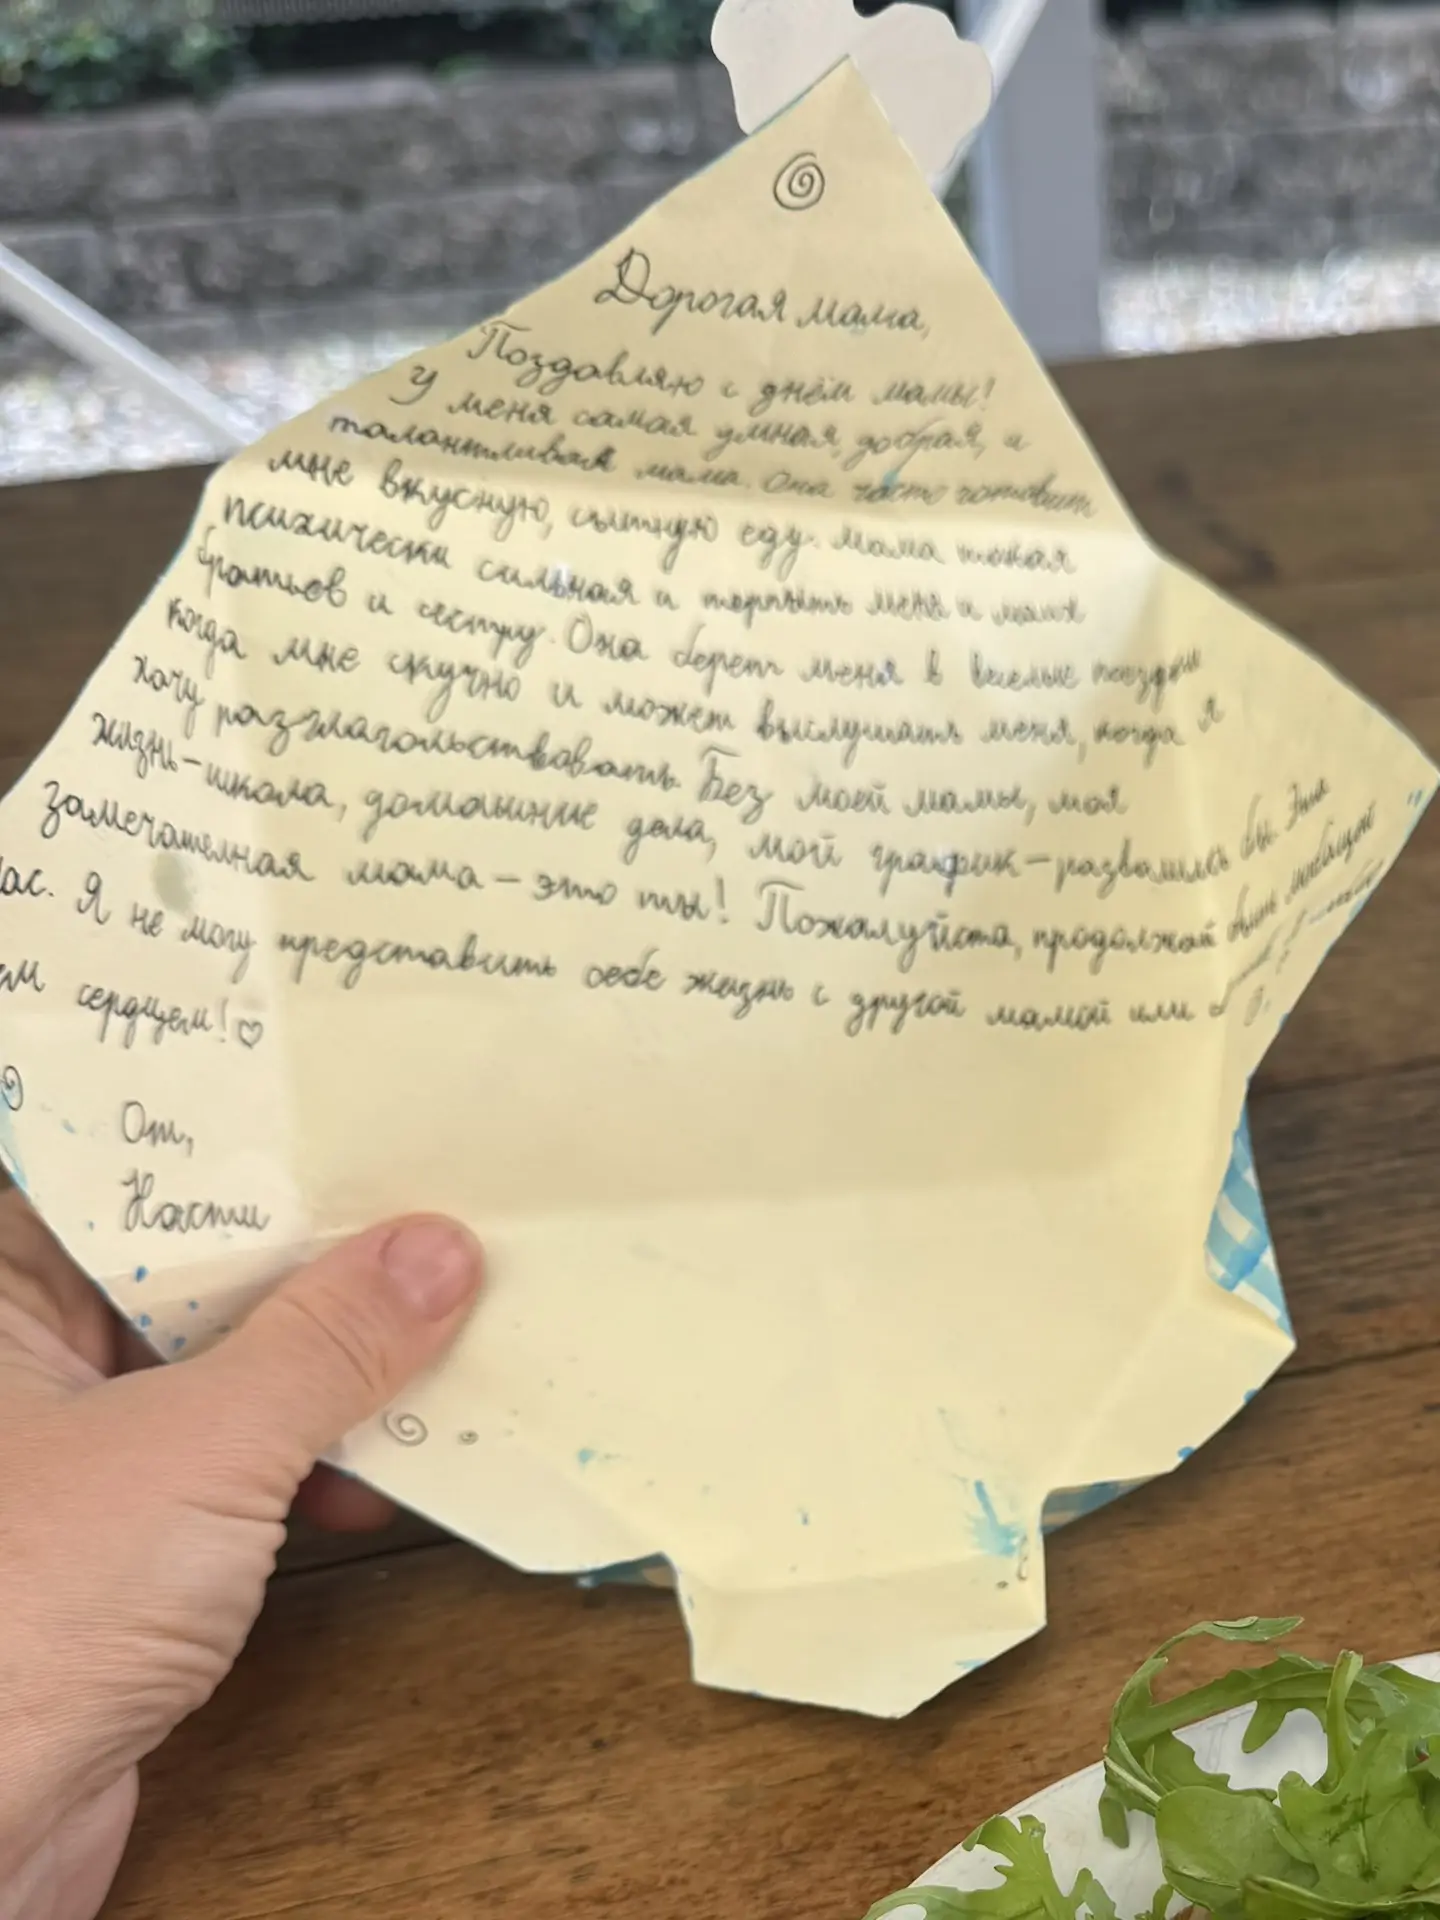 Дорогая мама,
Поздавляю с днём мамы!
У меня самая умная, добрая, и
талантливая мама. Она часто готовит
мне вкусную, сытную еду. Мама такая
психически сильная и терпить меня и моих
братьев и сестру. Она берет меня в веселые поездки
когда мне скучно и может выслушать меня, когда я
хочу разглагольствовать. Без моей мамы, моя
жизнь – школа, домашние дела, мой график – развалилась бы. Эта
замечателная мама – это ты! Пожалуйста, продолжай быть любящей
нас. Я не могу представить себе жизнь с другой мамой или
сердцем! ♡
От,
Насти